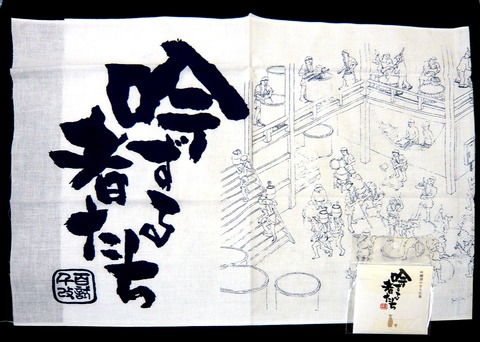 吟ずる
者たち
百試
千改
吟ずる
者たち